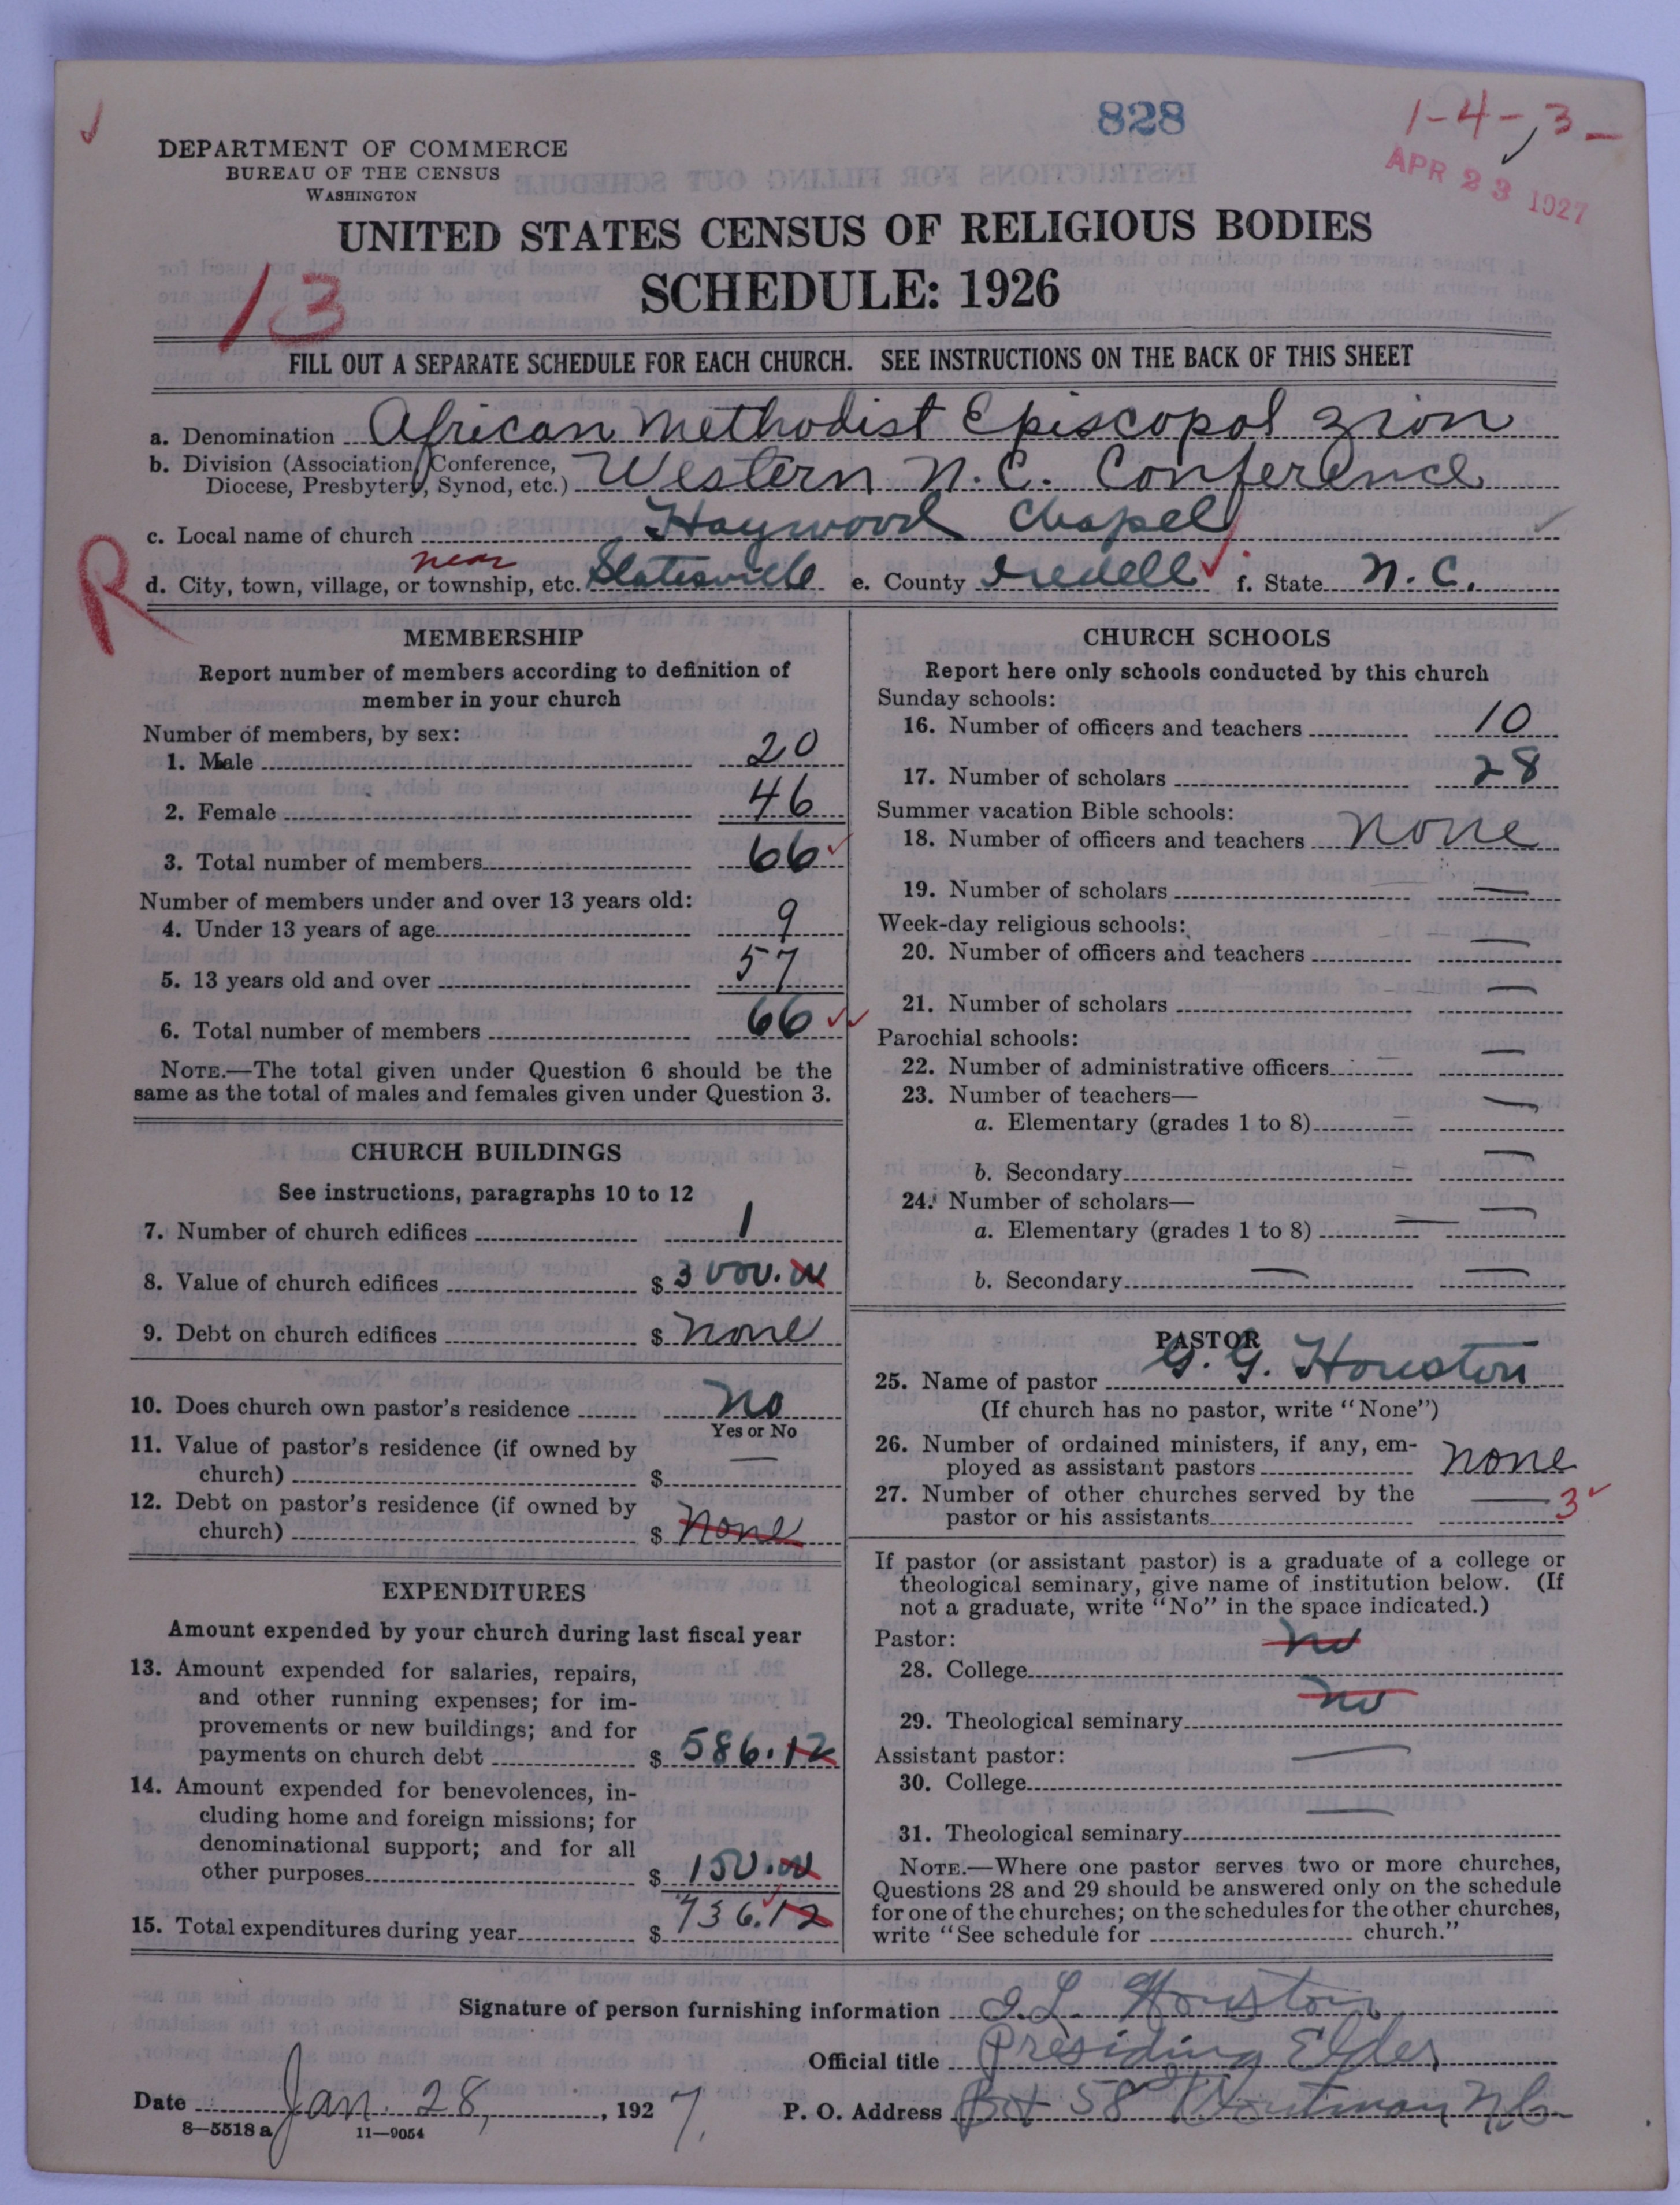 828
1-4-3-
APR 23 1927
DEPARTMENT OF COMMERCE
BUREAU OF THE CENSUS
WASHINGTON
UNITED STATES CENSUS OF RELIGIOUS BODIES
SCHEDULE: 1926
13
FILL OUT A SEPARATE SCHEDULE FOR EACH CHURCH. SEE INSTRUCTIONS ON THE BACK OF THIS SHEET
a. Denomination African Methodist Episcopal Zion
b. Division (Association, Conference, Diocese, Presbytery, Synod, etc.) Western N.C. Conference
c. Local name of church Haywood Chapel
R
d. City, town, village, or township, etc. near Statesville e. County Iredell f. State N.C.
MEMBERSHIP
Report number of members according to definition of
member in your church
Number of members, by sex:
1. Male 20
2. Female 46
3. Total number of members 66
Number of members under and over 13 years old:
4. Under 13 years of age 9
5. 13 years old and over 57
6. Total number of members 66
NOTE.—The total given under Question 6 should be the
same as the total of males and females given under Question 3.
CHURCH BUILDINGS
See instructions, paragraphs 10 to 12
7. Number of church edifices 1
8. Value of church edifices $ 3000.00
9. Debt on church edifices $ none
10. Does church own pastor's residence No
Yes or No
11. Value of pastor's residence (if owned by
church) $ —
12. Debt on pastor's residence (if owned by
church) $ none
EXPENDITURES
Amount expended by your church during last fiscal year
13. Amount expended for salaries, repairs,
and other running expenses; for im-
provements or new buildings; and for
payments on church debt $ 586.12
14. Amount expended for benevolences, in-
cluding home and foreign missions; for
denominational support; and for all
other purposes $ 150.00
15. Total expenditures during year $ 736.12
CHURCH SCHOOLS
Report here only schools conducted by this church
Sunday schools:
16. Number of officers and teachers 10
17. Number of scholars 28
Summer vacation Bible schools:
18. Number of officers and teachers none
19. Number of scholars —
Week-day religious schools:
20. Number of officers and teachers —
21. Number of scholars —
Parochial schools:
22. Number of administrative officers —
23. Number of teachers—
a. Elementary (grades 1 to 8) —
b. Secondary —
24. Number of scholars—
a. Elementary (grades 1 to 8) —
b. Secondary —
PASTOR
25. Name of pastor G. G. Houston
(If church has no pastor, write "None")
26. Number of ordained ministers, if any, em-
ployed as assistant pastors none
27. Number of other churches served by the
pastor or his assistants — 3
If pastor (or assistant pastor) is a graduate of a college or
theological seminary, give name of institution below. (If
not a graduate, write "No" in the space indicated.)
Pastor:
28. College no
29. Theological seminary no
Assistant pastor:
30. College —
31. Theological seminary —
NOTE.—Where one pastor serves two or more churches,
Questions 28 and 29 should be answered only on the schedule
for one of the churches; on the schedules for the other churches,
write "See schedule for church."
Signature of person furnishing information Houston
Official title Presiding Elder
Date Jan. 28, 1927. P. O. Address Box 58 Troutman N.C.
8—5518 a 11—9054